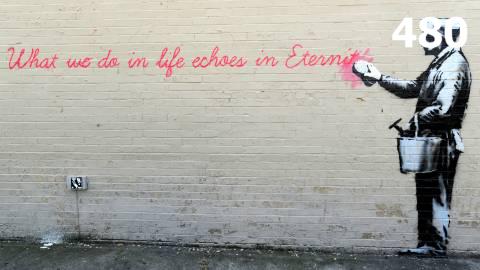 480
What we do in life echoes in Eternit